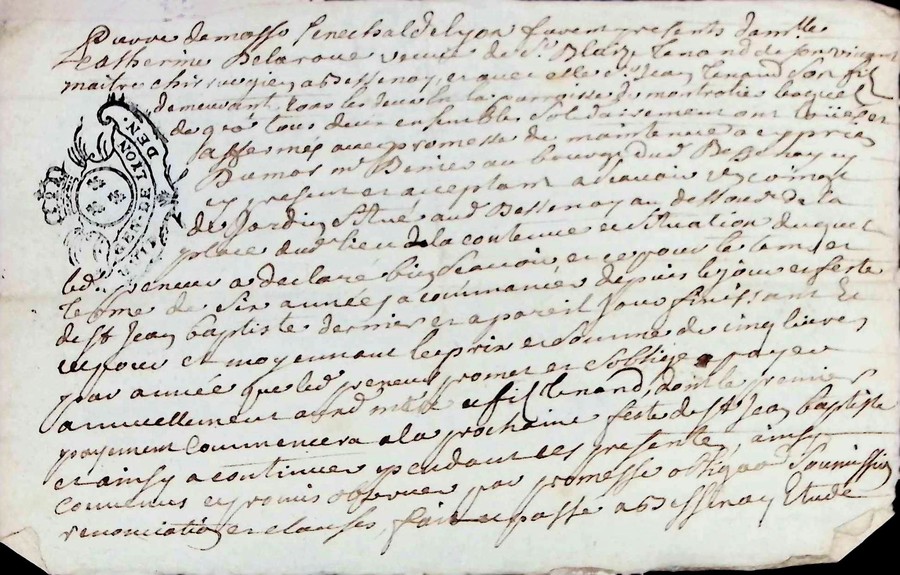 Pierre de masso senechal de lyon furent presents dam.lle
Catherine Delaroue veuve de Sr. Blaize Tenand de son vivant
maitre chirurgien a Bessenay, et avec elle Sr. Jean Tenand son fils
demeurant tous les deux en la parroisse de montrotier lesquels
de gré tous deux ensembles solidairement ont
affermés avec promesse de maintenue a
Dumas au bourg dud. Bessenay cy
present et acceptant a scavoir un
de Jardin situé aud. Bessenay au dessous de la
place dud. lieu de la contenue et situation duquel
led. preneur a declaré bien scavoir et ce pour le tems et
terme de six années a commancer depuis le jour et feste
de st Jean baptiste dernier et a pareil jour finissant et
ce pour et moyennant le prix et somme de cinq livres
par année que led. preneur promet et s'oblige payer
annuellement auxd. et fils Tenand, dont le premier
payement commencera a la prochaine feste de st Jean baptiste
et ainsy a continuer pendant ces presentes, ainsy
convenus et promis observer par promesse obligaon. soumission
renonciation et clauses, fait et passé a Bessenay Etude
GEN. DE LYON
DEN.